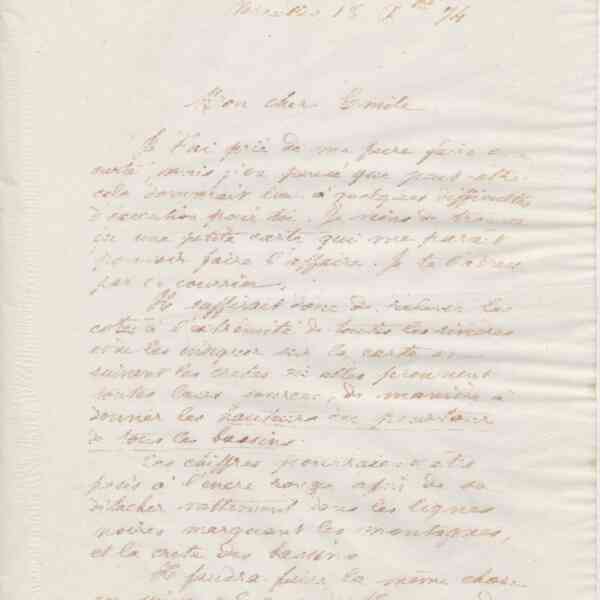 Mon cher Emile
Je t'ai prié de me faire faire une
carte, mais j'ai pensé que peut-être
cela donnerait lieu à quelques difficultés
d'exécution pour toi. Je viens de trouver
ici une petite carte qui me parait
pouvoir faire l'affaire. Je te l'adresse
par ce courrier.
Il suffirait donc de relever les
cotes à l'extrémité de toutes les rivières
et de les indiquer sur la carte en
suivant les cretes où elles prennent
toutes leurs sources, de manière à
donner les hauteurs du pourtour
de tous les bassins.
Ces chiffres pourraient être
posés à l'encre rouge afin de se
détacher nettement dans les lignes
noires marquant les montagnes,
et la crete des bassins
Il faudra faire la même chose